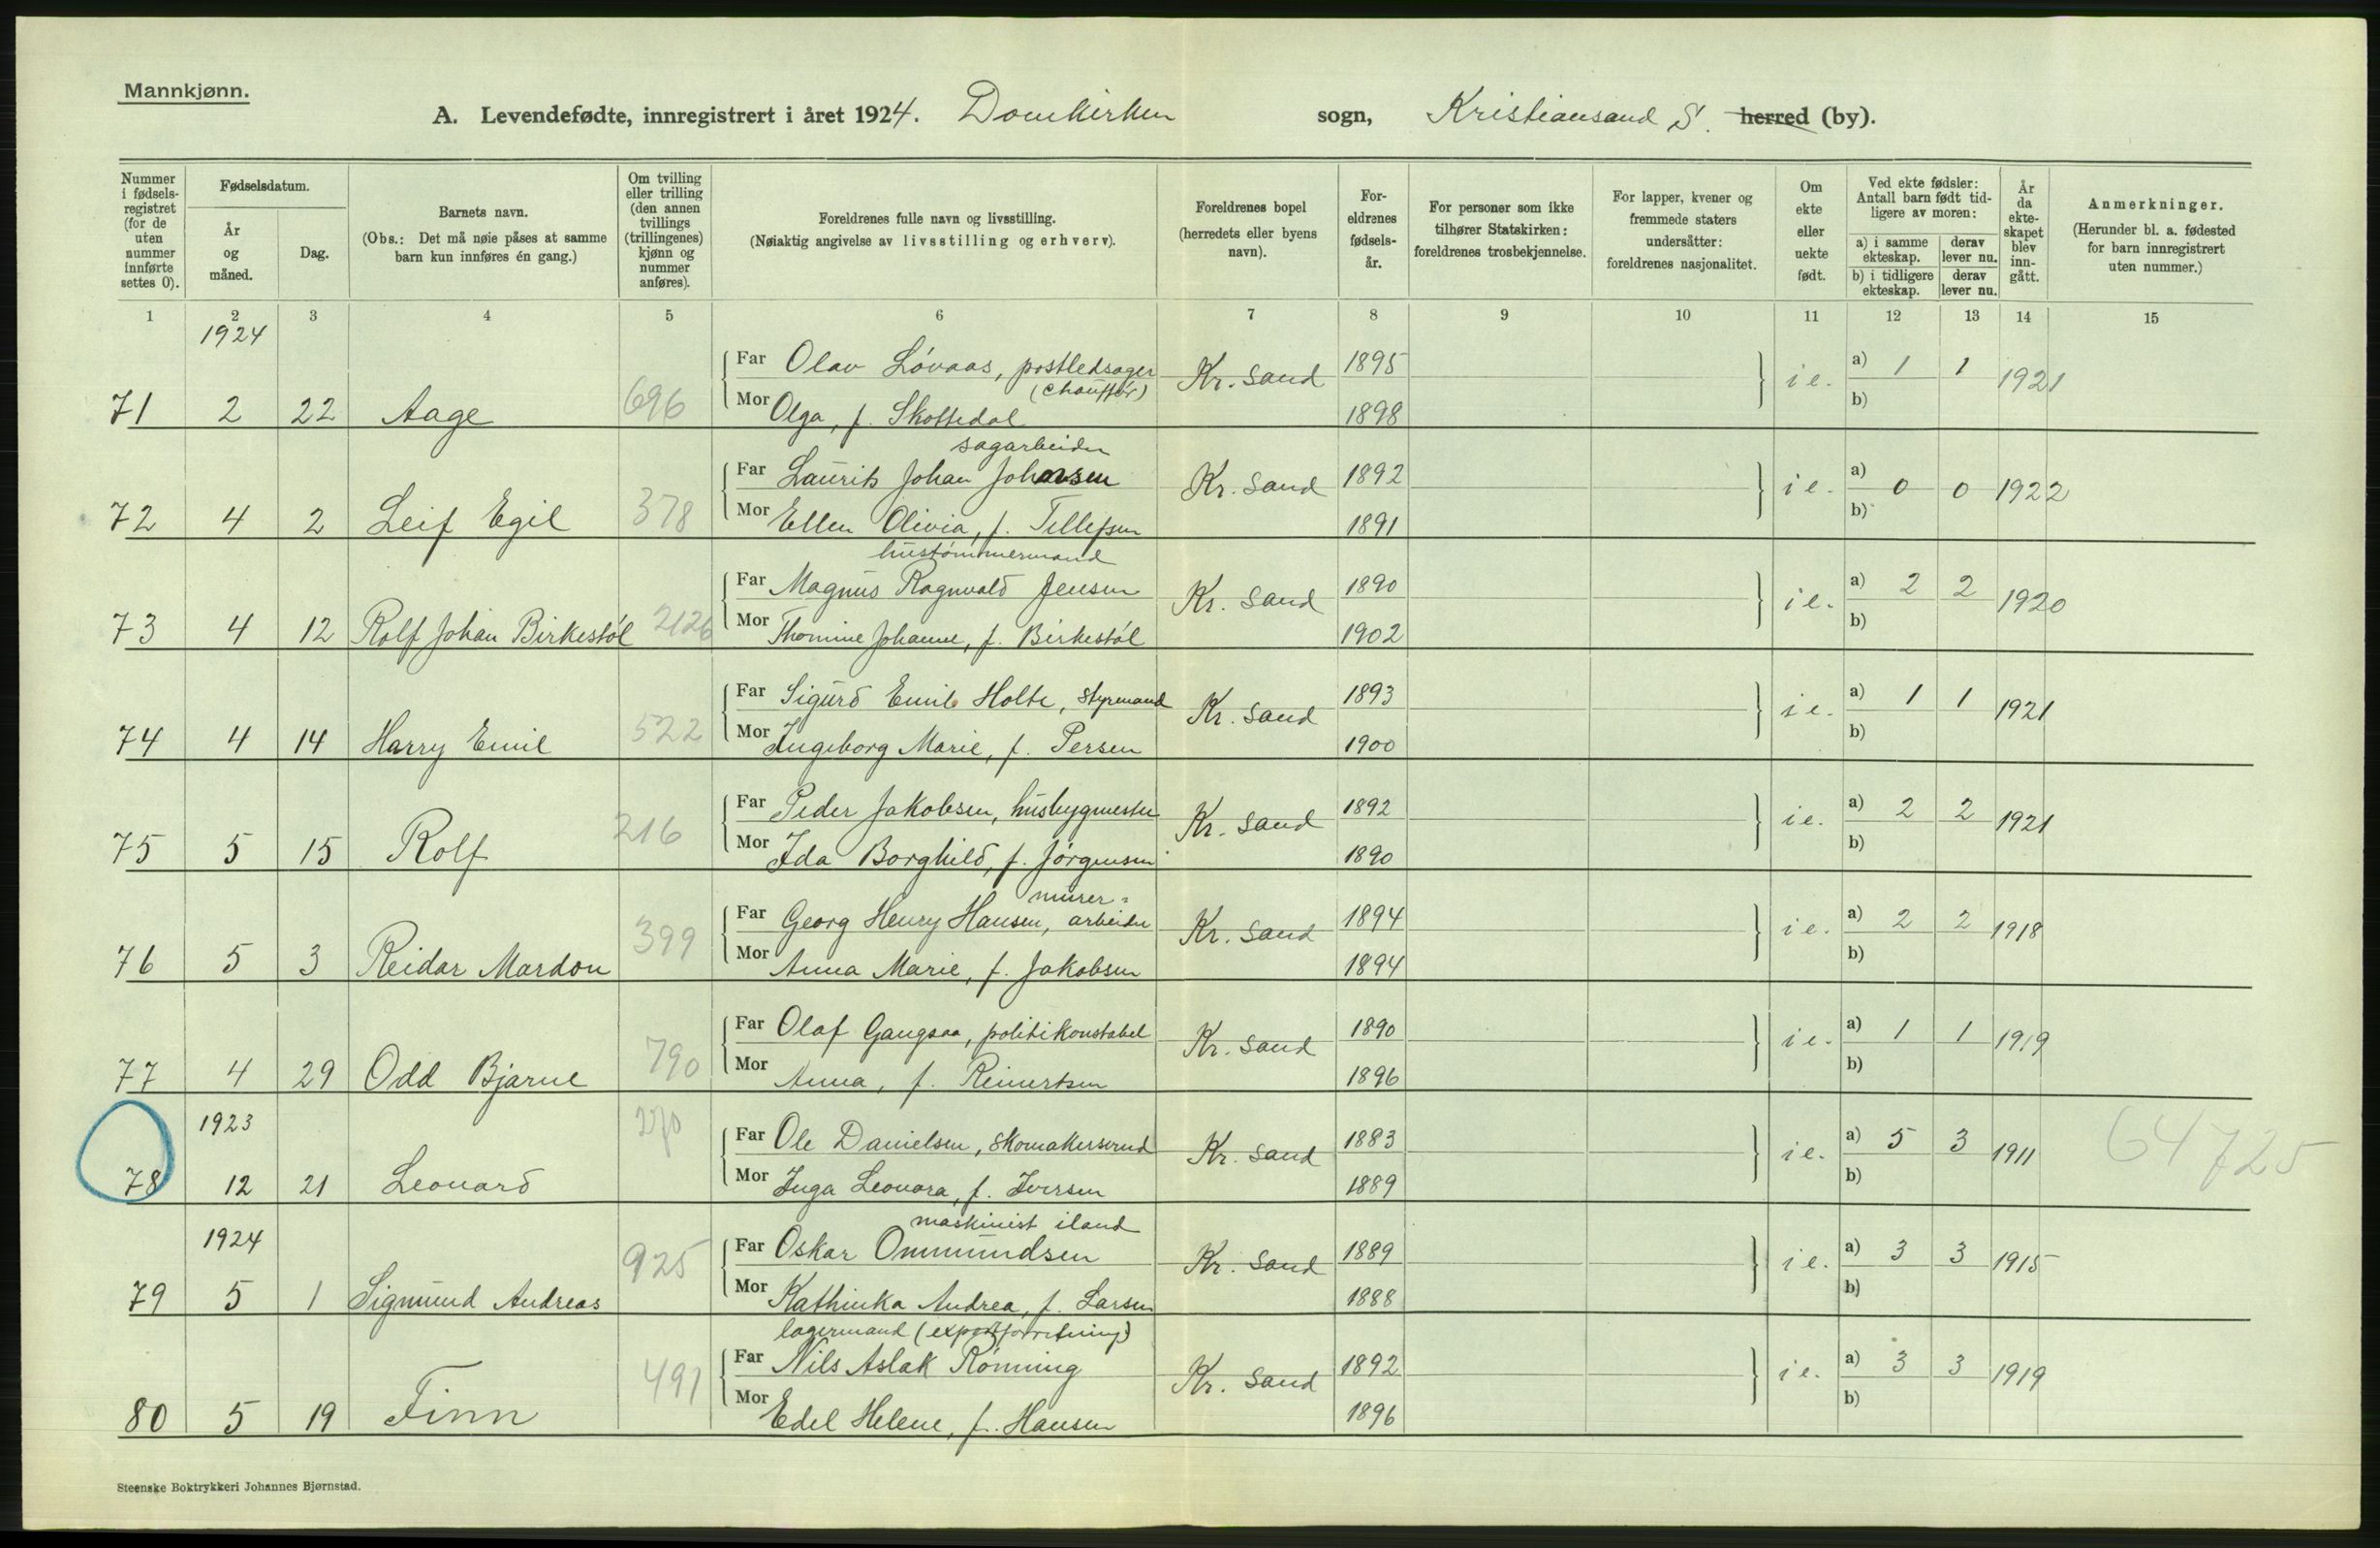 Mannkjønn.
A. Levendefødte, innregistrert i året 1924. Domkirken sogn, Kristiansand S. herred (by).
Nummer i fødselsregistret (for de uten nummer innførte settes 0).
Fødselsdatum.
År og måned.
Dag.
Barnets navn.
(Obs.: Det må nøie påses at samme barn kun innføres én gang.)
Om tvilling eller trilling (den annen tvillings (trillingenes) kjønn og nummer anføres).
Foreldrenes fulle navn og livsstilling.
(Nøiaktig angivelse av livsstilling og erhverv).
Foreldrenes bopel (herredets eller byens navn).
Foreldrenes fødselsår.
For personer som ikke tilhører Statskirken: foreldrenes trosbekjennelse.
For lapper, kvener og fremmede staters undersåtter: foreldrenes nasjonalitet.
Om ekte eller uekte født.
Ved ekte fødsler: Antall barn født tidligere av moren:
a) i samme ekteskap. derav lever nu.
b) i tidligere ekteskap. derav lever nu.
År da ekteskapet blev inngått.
Anmerkninger.
(Herunder bl. a. fødested for barn innregistrert uten nummer.)
1 2 3 4 5 6 7 8 9 10 11 12 13 14 15
1924
Far Olav Lóvaas, postledsager Kr. Sand 1895 i e. a) 1 1 1921
(chauffør)
71 2 22 Aage 696 Mor Olga, f. Skottedal 1898 b)
sagarbeider
Far Laurits Johan Johansen Kr. Sand 1892 i e. a) 0 0 1922
72 4 2 Leif Egil 378 Mor Ellen Olivia, f. Tellefsen 1891 b)
hustömmermand
Far Magnus Ragnvald Jensen Kr. Sand 1890 i e. a) 2 2 1920
73 4 12 Rolf Johan Birkestól 2126 Mor Thomine Johanne, f. Birkestól 1902 b)
Far Sigurd Emil Holte, styrmand Kr. Sand 1893 i e. a) 1 1 1921
74 4 14 Harry Emil 522 Mor Ingeborg Marie, f. Persen 1900 b)
Far Peder Jakobsen, husbygmester Kr. Sand 1892 i e. a) 2 2 1921
75 5 15 Rolf 216 Mor Ida Borghild, f. Jörgensen 1890 b)
murer-
Far Georg Henry Hansen, arbeider Kr. Sand 1894 i e. a) 2 2 1918
76 5 3 Reidar Mardon 399 Mor Anna Marie, f. Jakobsen 1894 b)
Far Olaf Gangsaa, politikonstabel Kr. Sand 1890 i e. a) 1 1 1919
77 4 29 Odd Bjarne 790 Mor Anna, f. Reinertsen 1896 b)
1923 270
Far Ole Danielsen, skomakersvend Kr. Sand 1883 i e. a) 5 3 1911 64725
78 12 21 Leonard Mor Inga Leonora, f. Iversen 1889 b)
maskinist iland
1924
Far Oskar Ommundsen Kr. Sand 1889 i e. a) 3 3 1915
79 5 1 Sigmund Andreas 925 Mor Kathinka Andrea, f. Larsen 1888 b)
lagermand (exportforretning)
Far Nils Aslak Rónning Kr. Sand 1892 i e. a) 3 3 1919
80 5 19 Finn 491 Mor Edel Helene, f. Hansen 1896 b)
Steenske Boktrykkeri Johannes Bjørnstad.